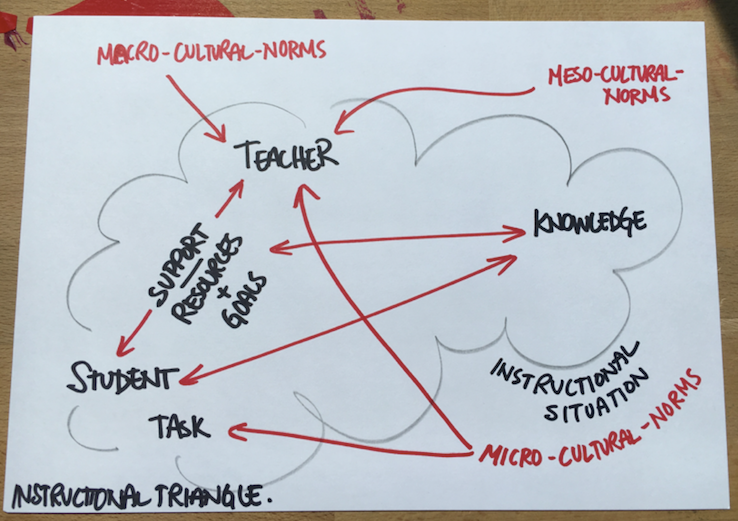 MACRO-CULTURAL-NORMS
MESO-CULTURAL-
NORMS
TEACHER
KNOWLEDGE
SUPPORT
RESOURCES
+
GOALS
STUDENT
TASK
INSTRUCTIONAL
SITUATION
MICRO-CULTURAL-NORMS
INSTRUCTIONAL TRIANGLE.